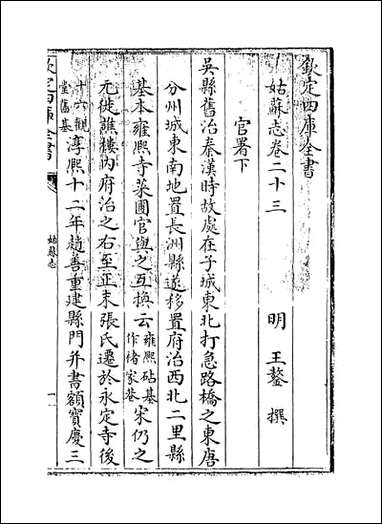 欽定四庫全書
姑蘇志卷二十三
明 王鏊 撰
官署下
吳縣舊治秦漢時故處在子城東北打急路橋之東唐
分州城東南地置長洲縣遂移置府治西北二里縣
基本雍熙寺菜圃官與之互換云雍熙砧基作褚家巷宋仍之
元徙譙樓内府治之右至正末張氏遷於永定寺後
十六觀堂舊基淳熙十二年趙善重建縣門并書額寶慶三
欽定四庫全書
姑蘇志
一